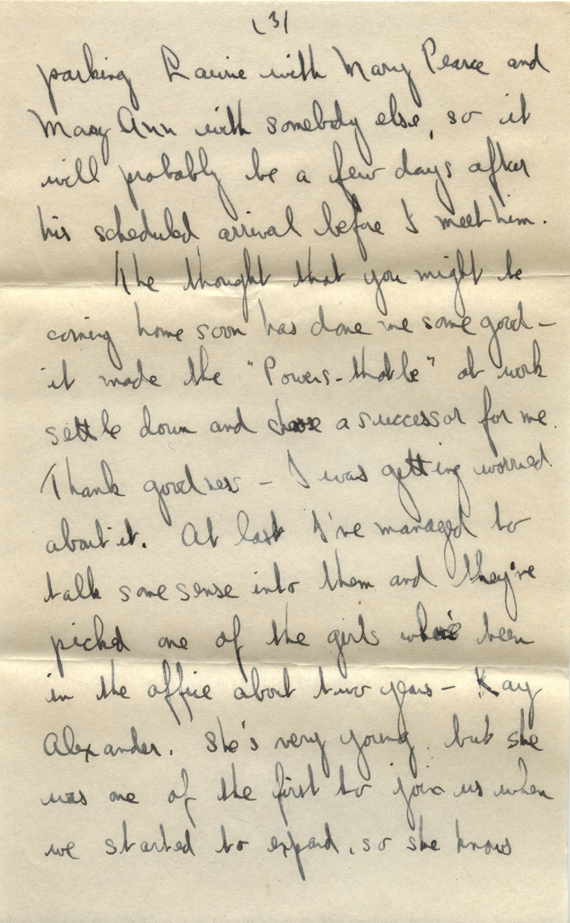 (3)
parking Laurie with Mary Pearce and
Mary Ann with somebody else, so it
will probably be a few days after
his scheduled arrival before I meet him.
The thought that you might be
coming home soon has done me some good –
it made the "Powers-that-be" at work
settle down and chose a successor for me.
Thank goodness – I was getting worried
about it. At last I've managed to
talk some sense into them and they've
picked one of the girls who's been
in the office about two years – Kay
Alexander. She's very young, but she
was one of the first to join us when
we started to expand, so she knows